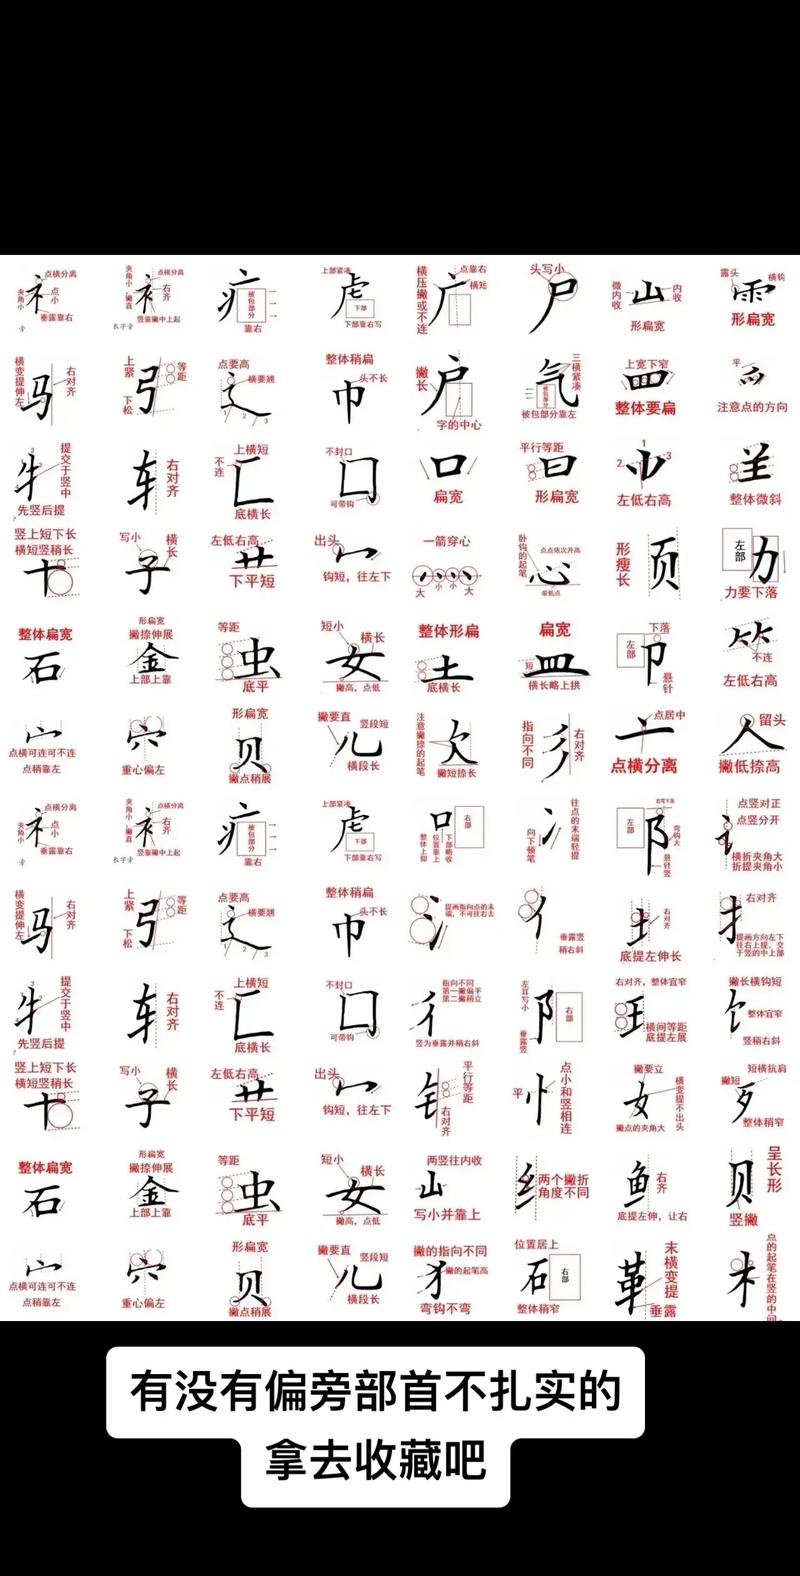 点横分离
夹角小
点小
垂露靠右
旁
夹角小
撇直
点横分离
右齐
竖靠撇中上起
衣字旁
被包部分
靠右
上部紧凑
下部
下部靠右写
横压撇或不连
点靠右
横短
头写小
微内收
内收
形扁宽
露头
横钩
形扁宽
横变提伸左
右对齐
上紧
下松
等距
点要高
横要翘
1 2 3
整体稍扁
头不长
撇长
字的中心
三横紧凑
被包部分
被包部分靠左
上宽下窄
整体要扁
平
注意点的方向
提交于竖中
先竖后提
右对齐
不连
上横短
底横长
不封口
可带钩
扁宽
平行等距
形扁宽
1
2
3
左低右高
整体微斜
竖上短下长
横短竖稍长
写小
横长
左低右高
下平短
出头
钩短，往左下
一箭穿心
大 小 小 大
卧钩的起笔
点点依次升高
最低点
形瘦长
左部
力要下落
整体扁宽
形扁宽
撇捺伸展
上部上靠
等距
底平
短小
横长
撇高，点低
整体形扁
底横长
扁宽
短
横长略上拱
左部
下落
悬针
不连
左低右高
点横可连可不连
点稍靠左
重心偏左
形扁宽
撇点稍展
撇要直
竖段短
横段长
注意撇捺的起笔
撇短捺长
指向不同
右对齐
点居中
点横分离
留头
撇低捺高
点横分离
夹角小
点小
垂露靠右
旁
夹角小
撇直
点横分离
右齐
竖靠撇中上起
衣字旁
被包部分
靠右
上部紧凑
下部
下部靠右写
右部
整体上仰
位置靠上
下部略收
往点的末端轻提
向下顿笔
左部
弯钩大
悬针竖
点竖对正
点竖分开
横折夹角大
折提夹角小
横变提伸左
右对齐
上紧
下松
等距
点要高
横要翘
1 2 3
整体稍扁
头不长
提画指向点的末
端，不可往右去
垂露竖
稍右斜
右对齐
底提左伸长
右对齐
提画方向左下
往右上提，交
于竖的中上部
提交于竖中
先竖后提
右对齐
不连
上横短
底横长
不封口
可带钩
指向不同
第一撇偏平
第二撇稍立
竖为垂露并稍右斜
左耳写小
垂露竖
右部
右对齐，整体宜窄
横间等距
底提左展
撇长横钩短
整体宜窄
竖稍右斜
竖上短下长
横短竖稍长
写小
横长
左低右高
下平短
出头
钩短，往左下
平行等距
右对齐
平
点小和竖相连
撇要立
横变提不出头
撇点的夹角大
短横抗肩
撇短
整体稍窄
整体扁宽
形扁宽
撇捺伸展
上部上靠
等距
底平
短小
横长
撇高，点低
两竖往内收
写小并靠上
两个撇折
角度不同
右齐
底提左伸，让右
呈长形
竖撇
点横可连可不连
点稍靠左
重心偏左
形扁宽
撇点稍展
撇要直
竖段短
横段长
撇的指向不同
撇的起笔高
弯钩不弯
位置居上
右部
整体稍窄
末横变提
垂露
点的起笔在竖的中间
有没有偏旁部首不扎实的
拿去收藏吧